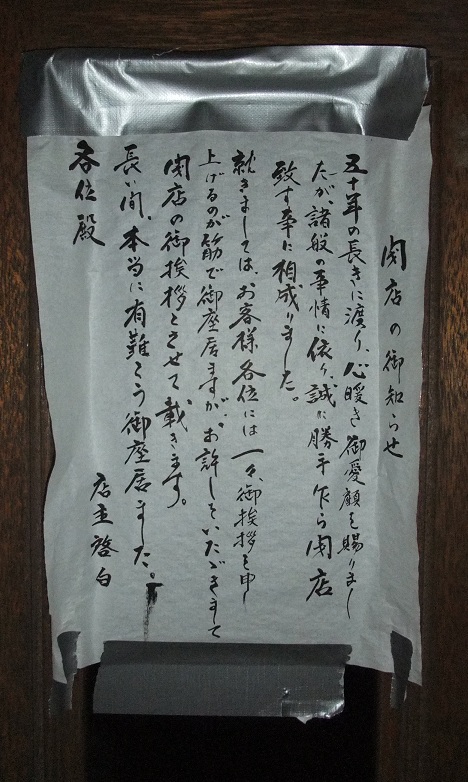 閉店の御知らせ
五十年の長きに渡り、心暖き御愛顧を賜りまし
たが、諸般の事情に依り、誠に勝手乍ら閉店
致す事に相成りました。
就きましては、お客様各位には一々、御挨拶を申し
上げるのが筋で御座居ますが、お許しをいただきまして
閉店の御挨拶とさせて載きます。
長い間、本当に有難とう御座居ました。
店主啓白
各位殿